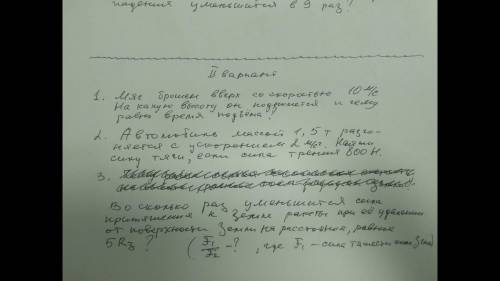 падения уменьшится в 9 раз?
II вариант
1. Мяч брошен вверх со скоростью 10 м/с
На какую высоту он поднимется и чему
равно время подъёма?
2. Автомобиль массой 1,5 т разго-
няется с ускорением 2 м/с². Найти
силу тяги, если сила трения 800 Н.
3.
Во сколько раз уменьшится сила
притяжения к Земле ракеты при её удалении
от поверхности Земли на расстояние, равное
5Rз ? (F₁/F₂ - ?, где F₁ - сила